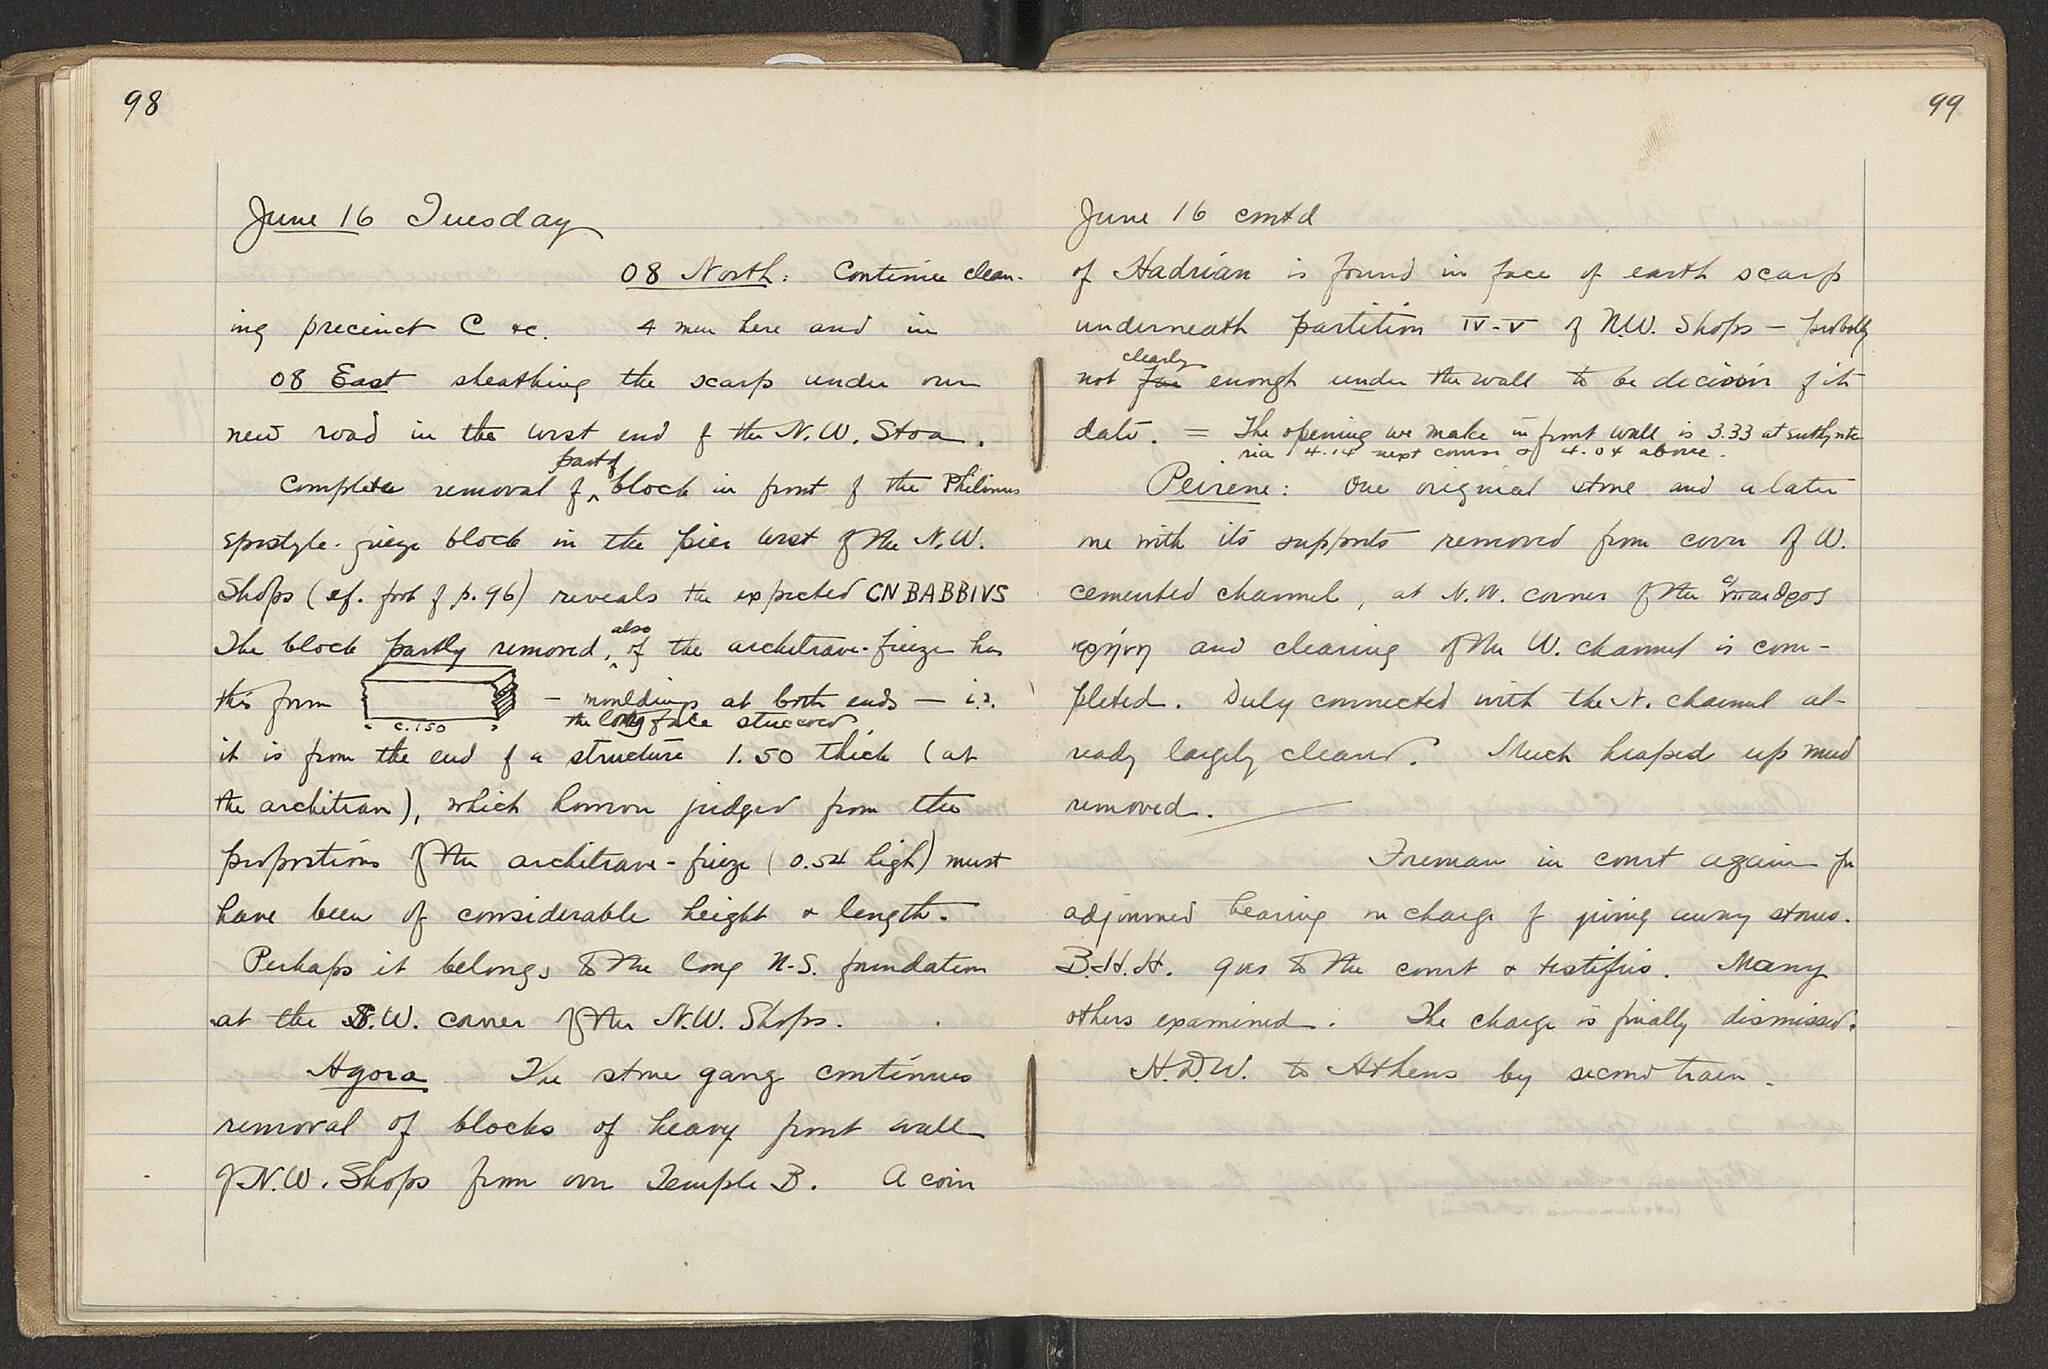 98
June 16 Tuesday
08 North: Continue clean-
ing precinct C &c. 4 men here and in
08 East sheathing the scarp under our
new road in the west end of the N.W. Stoa.
Complete removal of part of block in front of the Philinus
epistyle-frieze block in the pier west of the N.W.
Shops (cf. foot of p. 96) reveals the expected CN BABBIVS
The block partly removed, also of the architrave-frieze has
this form — mouldings at both ends — i.e.
c. 1.50 the long face stuccoed
it is from the end of a structure 1.50 thick (at
the architrave), which however judged from the
proportions of the architrave-frieze (0.54 high) must
have been of considerable height & length.
Perhaps it belongs to the long N-S. foundation
at the S.W. corner of the N.W. Shops.
Agora The stone gang continues
removal of blocks of heavy front wall
of N.W. Shops from over Temple B. A coin
99
June 16 contd
of Hadrian is found in face of earth scarp
underneath partition IV-V of N.W. Shops — probably
not far clearly enough under the wall to be decisive of its
date. = The opening we make in front wall is 3.33 at
4.14 next course & 4.04 above.
Peirene: One original stone and a later
one with its supports removed from cover of W.
cemented channel, at N.W. corner of the ὕπαιθρος
κρήνη and clearing of the W. channel is com-
pleted. Duly connected with the N. channel al-
ready largely cleared. Much heaped up mud
removed.
Foreman in court again for
adjourned hearing on charge of giving away stones.
B.H.H. goes to the court & testifies. Many
others examined. The charge is finally dismissed.
H.D.W. to Athens by second train.